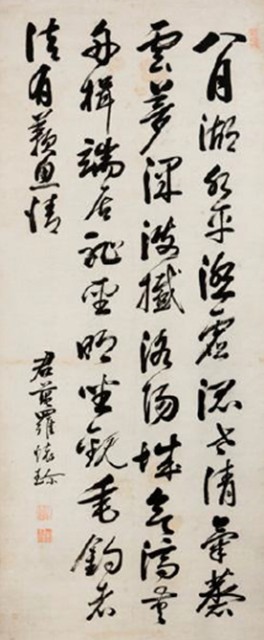 八月湖水平涵虛混太清氣蒸
雲夢澤波撼洛陽城欲濟無
舟楫端居恥聖明坐觀垂釣者
徒有羨魚情
君羅